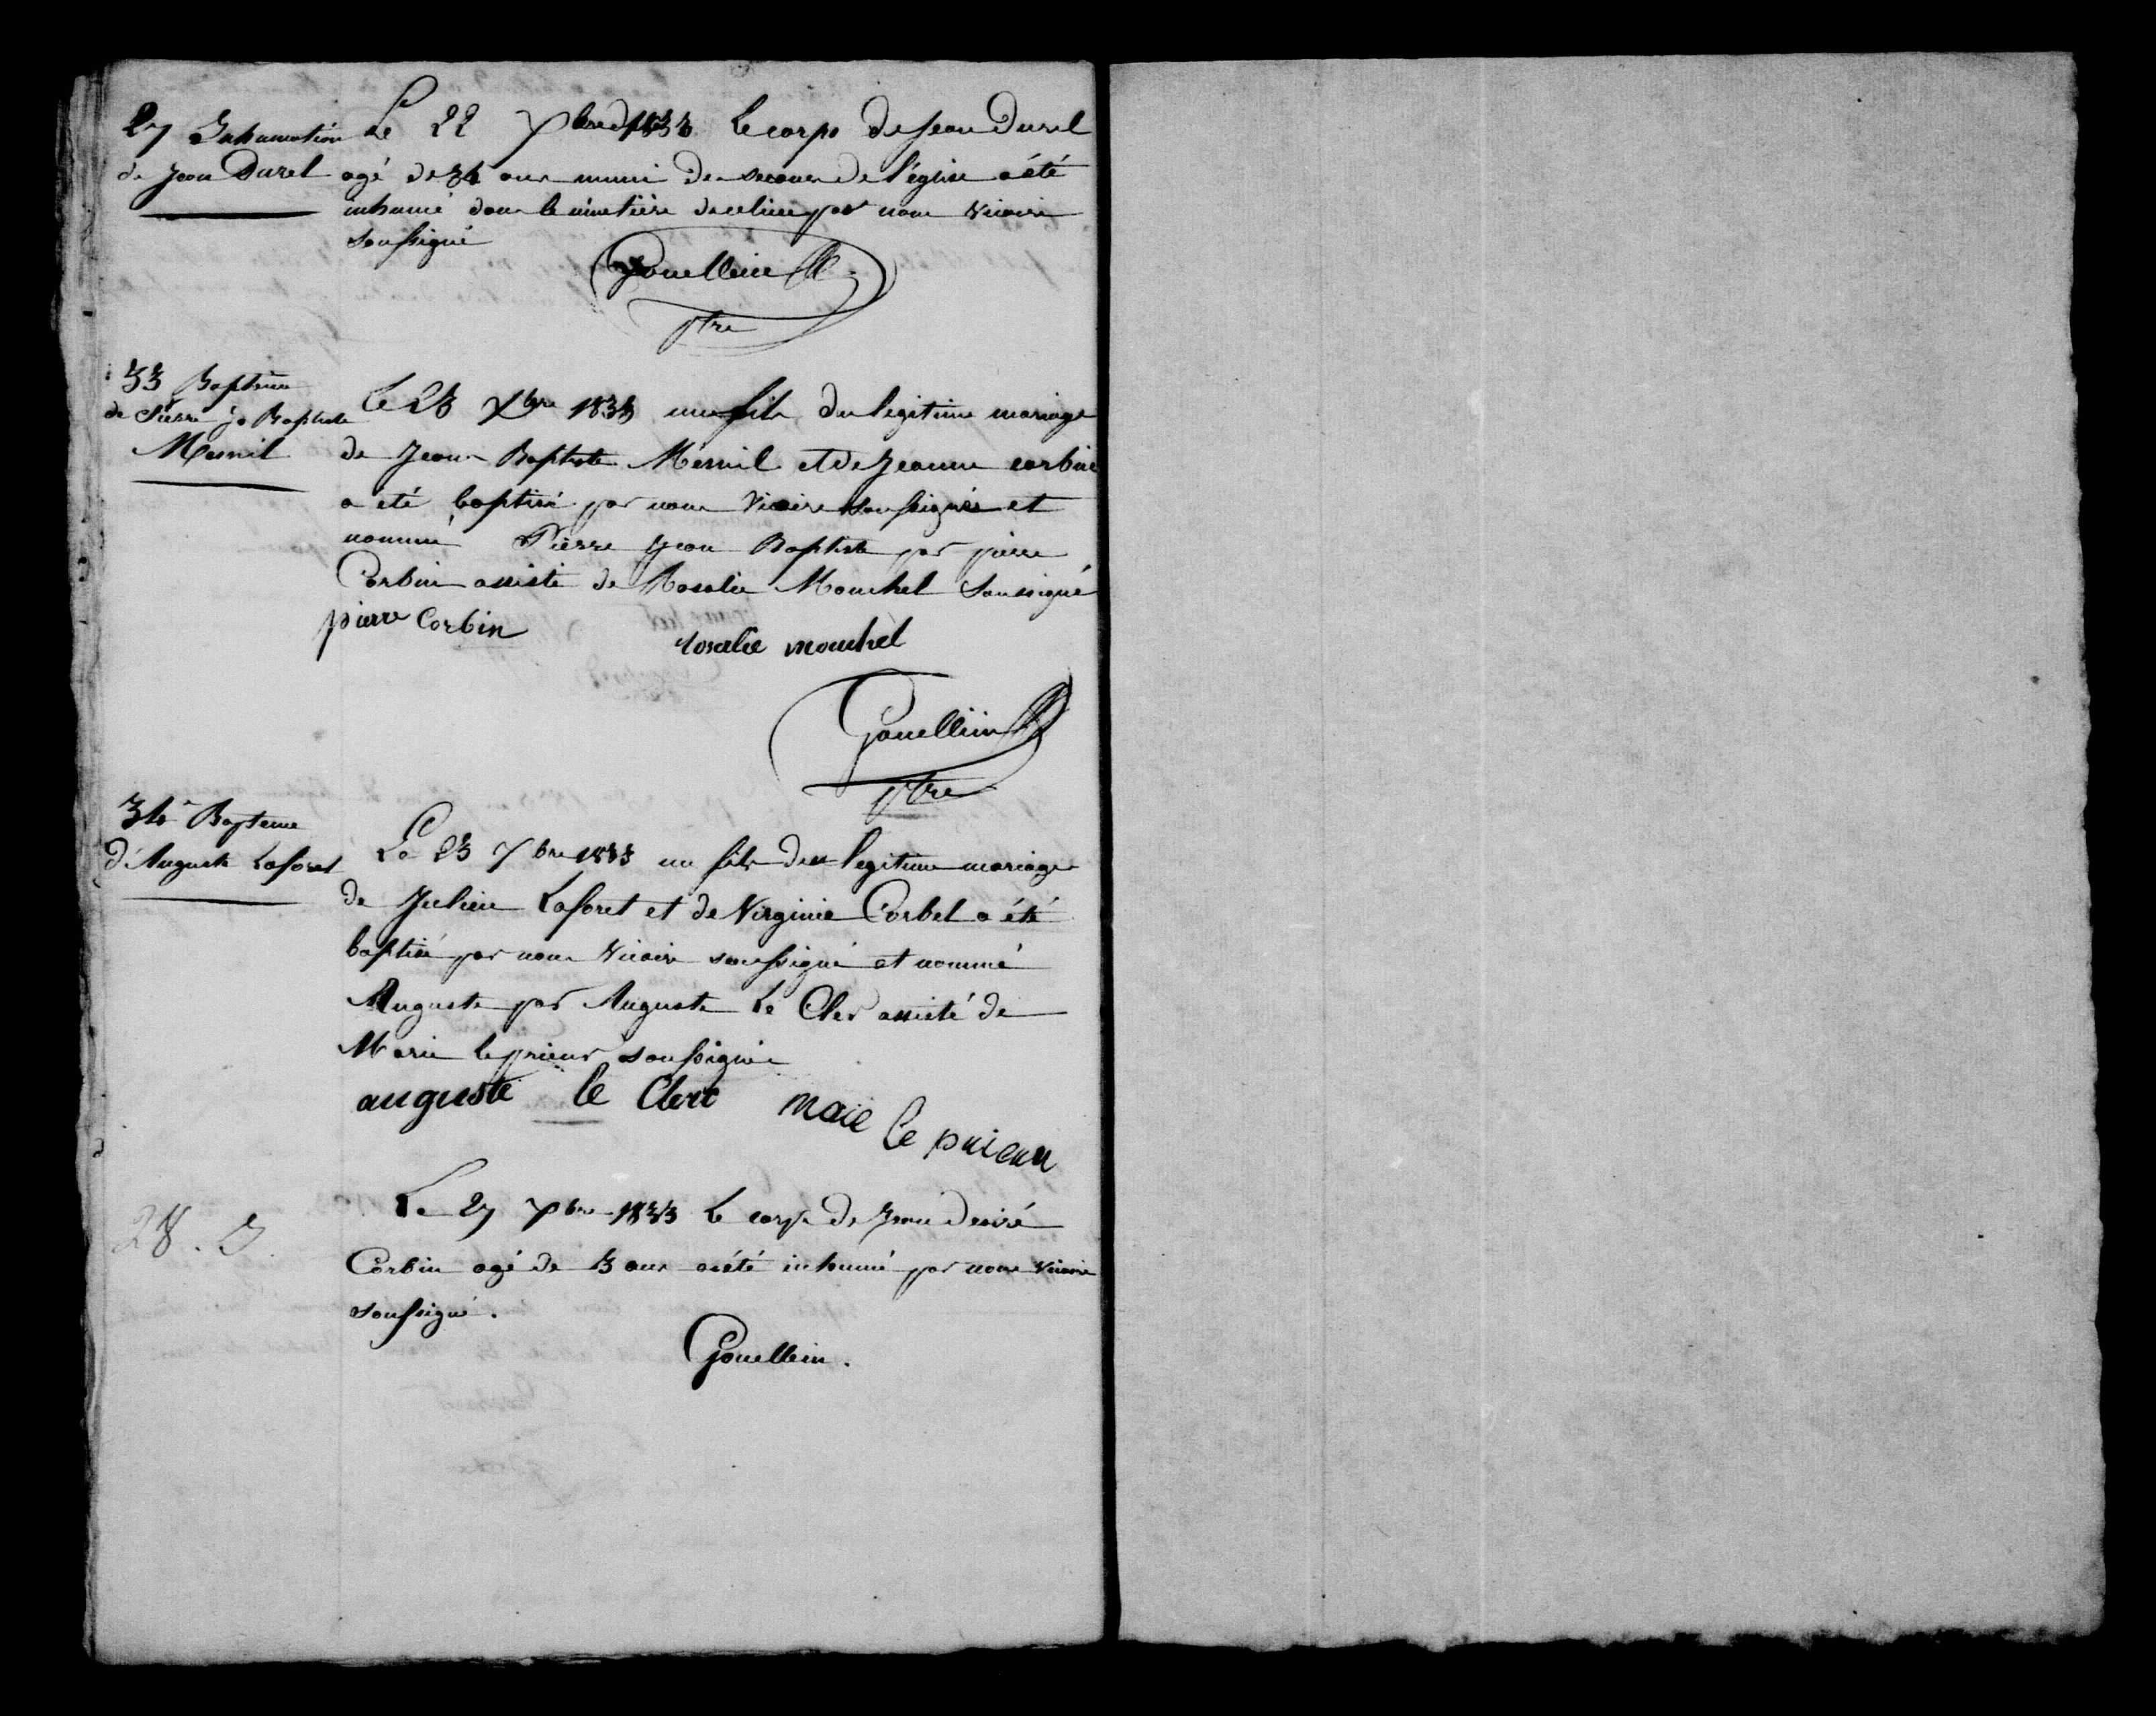 27 Inhumation
de Jean Durel
Le 22 Xbre 1833 Le corps de Jean Durel
agé de 34 ans muni des secours de l'église a été
inhumé dans le cimetière de ce lieu par nous vicaire
soussigné
Gouellain
ptre
33 Baptême
de Pierre Jn Baptiste
Mesnil
Le 23 Xbre 1833 un fils du legitime mariage
de Jean Baptiste Mesnil et de Jeanne corbin
a été baptisé par nous vicaire soussigné et
nommé Pierre Jean Baptiste par pierre
Corbin assisté de Rosalie Mouchel Soussigné
pierre Corbin
rosalie mouchel
Gouellain
ptre
34 Bapteme
d'Auguste Laforet
Le 23 Xbre 1833 un fils du legitime mariage
de Julien Laforet et de Virginie Corbel a été
baptisé par nous vicaire soussigné et nommé
Auguste par Auguste Le Cler assisté de
Marie le prieur soussignés
auguste le Clerc maie le prieur
28.
Le 27 Xbre 1833 Le corps de Jean desiré
Corbin agé de 3 ans a été inhumé par nous vicaire
soussigné.
Gouellain.